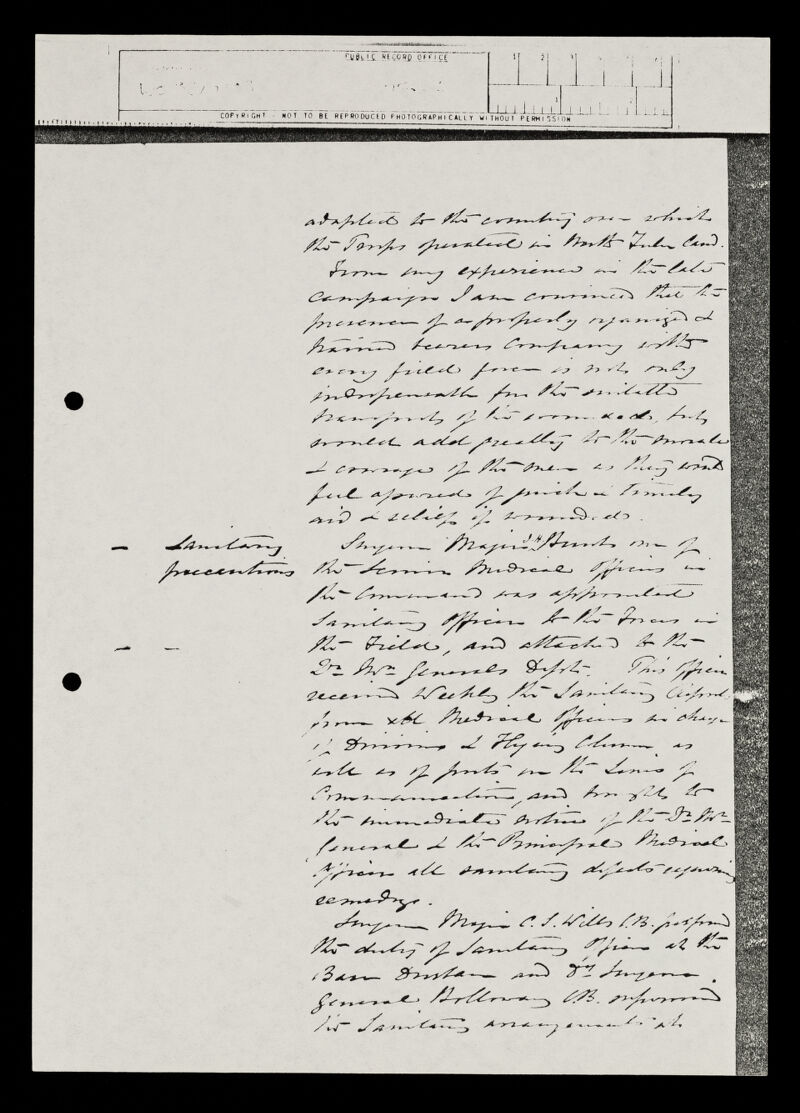 PUBLIC RECORD OFFICE
1 2 3 4 5 6
1 2
COPYRIGHT - NOT TO BE REPRODUCED PHOTOGRAPHICALLY WITHOUT PERMISSION
adapted to the country over which
the Troops operated in North Zulu Land.
From my experience in the late
campaign I am convinced that the
presence of a properly organized &
trained bearers Company with
every field force is not only
indispensable for the suitable
transport of the wounded, but
would add greatly to the morale
& courage of the men as they would
feel assured of quick & timely
aid & relief if wounded.
– Sanitary
precautions
Surgeon Major J.H. one of
the Senior Medical Officers in
the Command was appointed
Sanitary Officer to the Forces in
the Field, and attached to the
Qr. Mr. Generals Dept. This Officer
received Weekly the Sanitary Report
from all Medical Officers in charge
of Divisions & Flying Column as
well as of posts on the Lines of
Communication, and brought to
the immediate notice of the Qr. Mr.
General & the Principal Medical
Officer all sanitary defects requiring
remedy.
Surgeon Major C.S. Wills C.B. performed
the duty of Sanitary Officer at the
Base Durban and Dy. Surgeon
General Holloway C.B. supervised
the Sanitary arrangements at